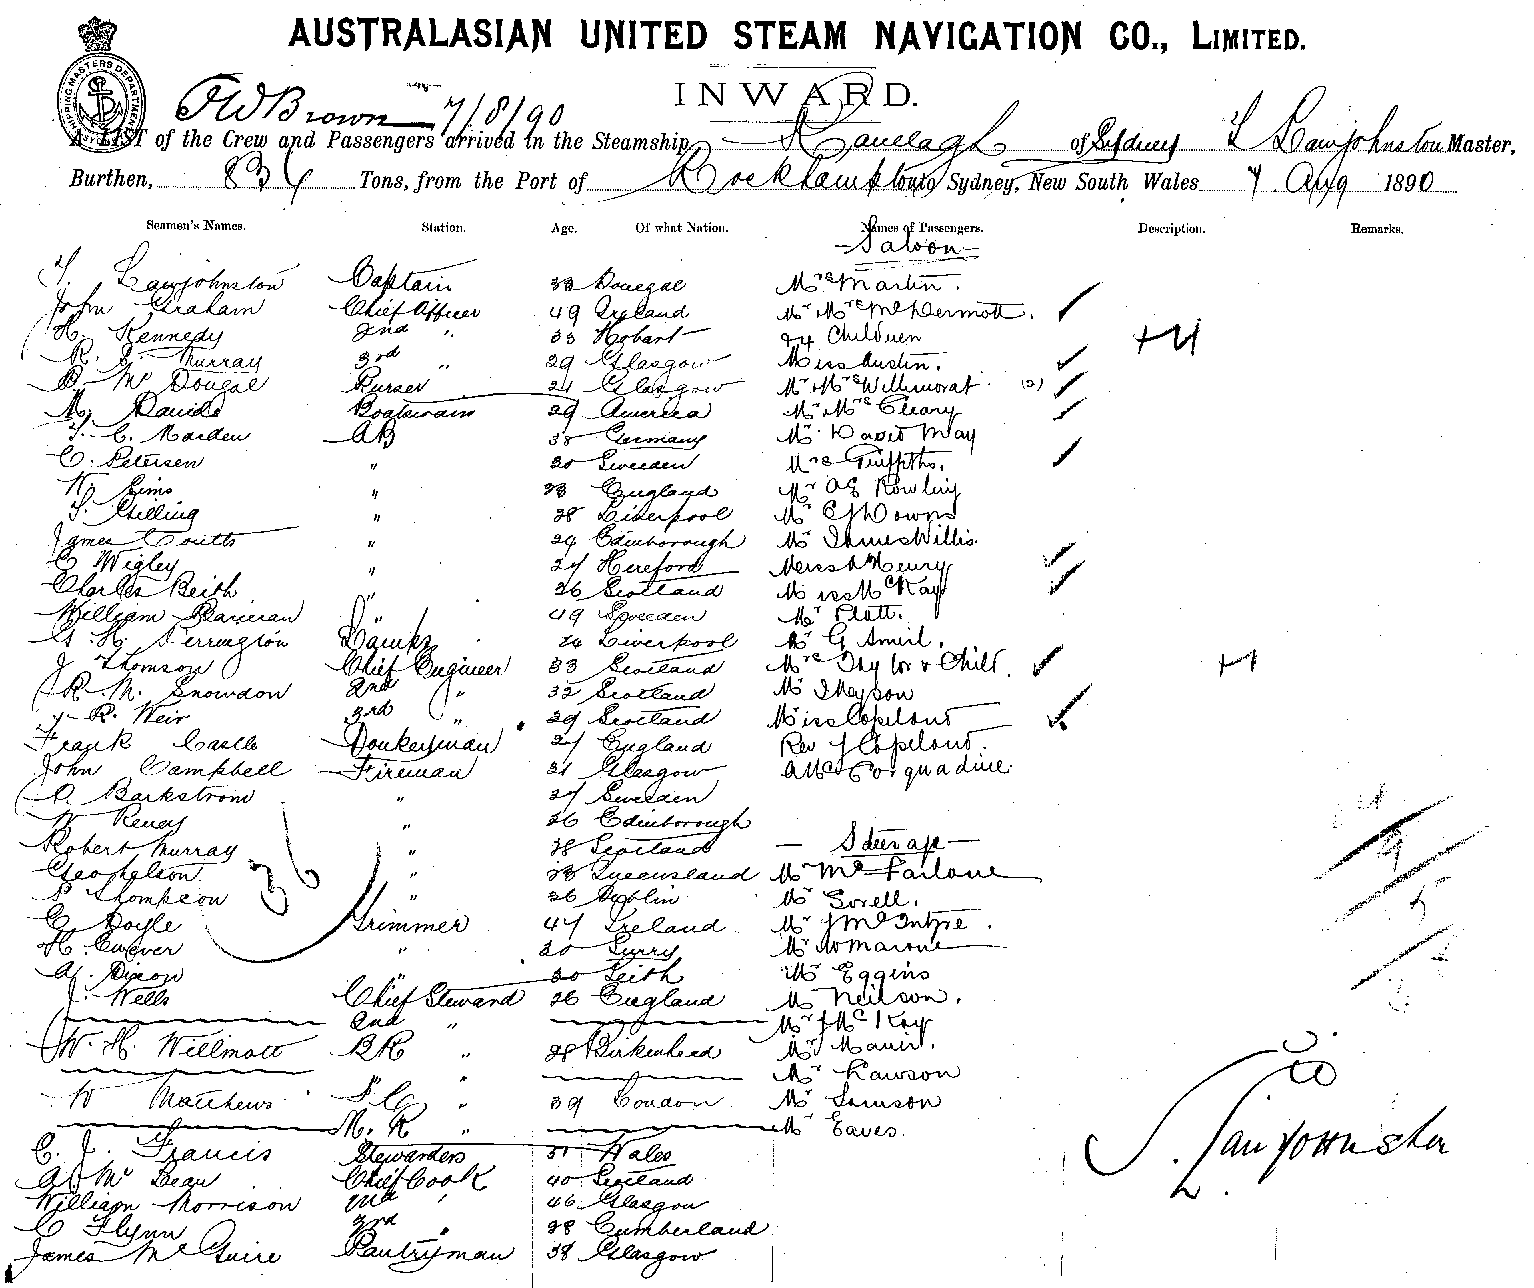 AUSTRALASIAN UNITED STEAM NAVIGATION CO., LIMITED.
INWARD.
SHIPPING MASTERS DEPARTMENT
FW Brown 7/8/90
A LIST of the Crew and Passengers arrived in the Steamship Ranelagh of Sydney T Lawjohnston Master,
Burthen, 834 Tons, from the Port of Rockhampton to Sydney, New South Wales 7 Aug 1890
Seamen's Names. Station. Age. Of what Nation. Names of Passengers. Description. Remarks.
Saloon
T. Lawjohnston Captain 33 Donegal Mrs Martin.
John Graham Chief Officer 49 Ireland Mr Mrs McDermott.
H. Kennedy 2nd " 33 Hobart & 4 Children +4
R. G. Murray 3rd " 29 Glasgow Miss Austin.
D. McDougal Purser 21 Glasgow Mr Mrs (2)
M. Davids Boatswain 29 America Mr Mrs Cleary
T. C. Marden AB 38 Germany Mr David May
C. Petersen " 20 Sweeden Mrs Griffiths.
W. Sims " 33 England Mr AG Rowling
T. Gilling " 28 Liverpool Mr Downs
James Coutts " 29 Edinborough Mr James Willis
C Wigley " 27 Hereford Miss Henry
Charles Beith " 26 Scotland Miss McKay
William " 49 Sweeden Mr Platt.
G. H. Perrington Lamps 24 Liverpool Mr G Amil.
J Thomson Chief Engineer 33 Scotland Mrs Taylor & Child. +1
R. M. Snowdon 2nd " 32 Scotland Mr
J. R. Weir 3rd " 29 Scotland Miss Copeland
Frank Castle Donkeyman 27 England Rev J Copeland.
John Campbell Fireman 31 Glasgow
O. Barkstrom " 27 Sweeden
W. " 26 Edinborough
Robert Murray " 28 Scotland Steerage
Geo Nelson " 23 Queensland Mr McFarlane
P Thompson " 26 Dublin Mr Sorell.
C Doyle Trimmer 47 Ireland Mr J McIntyre.
H. " 20 Surry Mr W Marone
A. Dixon " 30 Leith Mr Eggins
J. Wells Chief Steward 26 England Mr Neilson.
2nd " Mr J McKay
W. H. Willmott BR " 28 Birkenhead Mr
" Mr Lawson
W Matthews " 39 London Mr Samson
M. R " Mr Eaves.
C. J. Francis Stewardess 51 Wales
A McBean Chief Cook 40 Scotland
William Morrison 2nd " 46 Glasgow
C Flynn 3rd " 28 Cumberland
James McGuire Pantryman 38 Glasgow
36
T. Lawjohnston